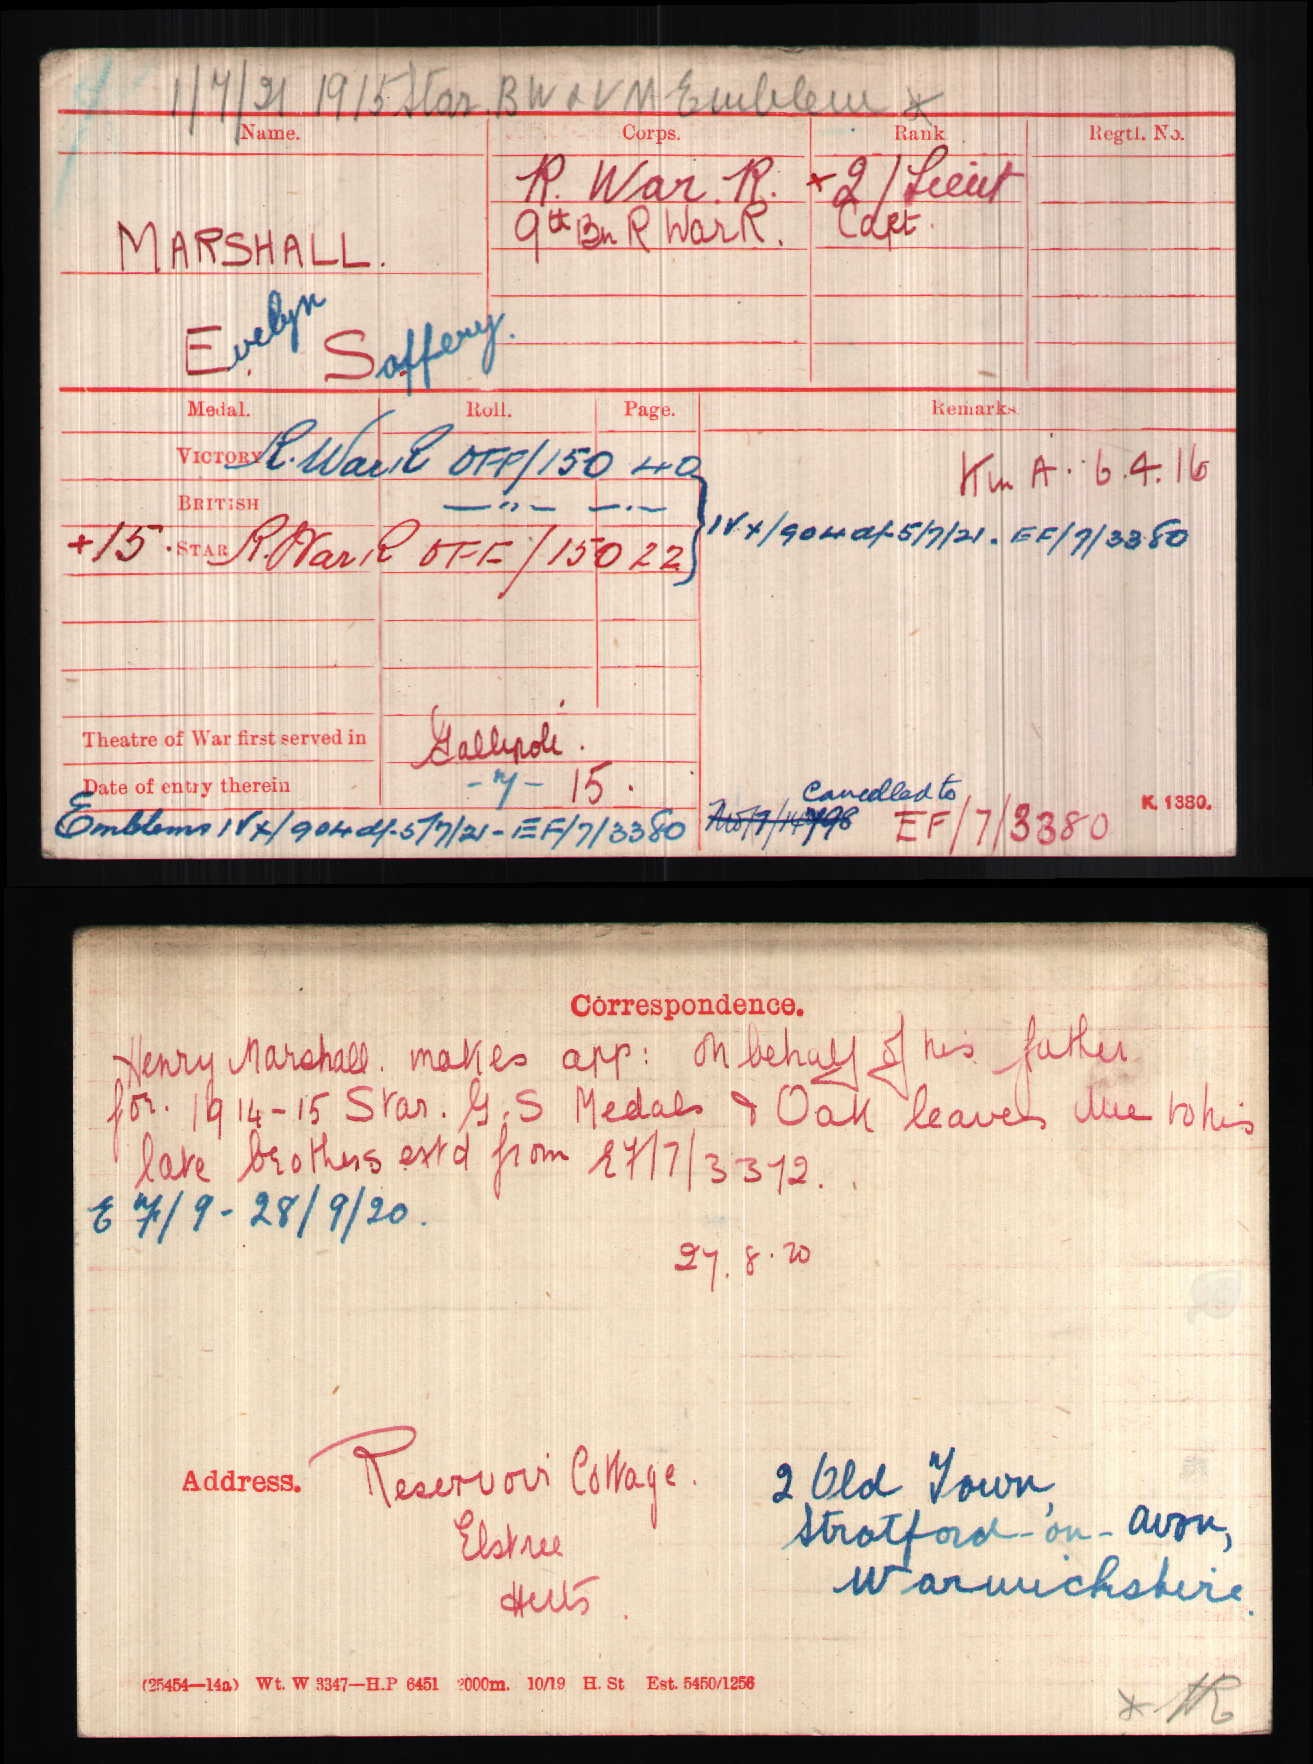 1/7/21 1915 Star. BW & VM Emblem *
Name. Corps. Rank Regtl. No.
R. War. R. + 2/Lieut
MARSHALL. 9th Bn R War R. Capt.
Evelyn Saffery.
Medal. Roll. Page. Remarks.
VICTORY R. War R OFF/150 40 K in A. 6.4.16
BRITISH —"— —.—
+15. STAR R. War R OFF/150 22 IVX/904 d/-5/7/21. EF/7/3380
Theatre of War first served in Gallipoli.
Date of entry therein -7- 15.
Cancelled to
K. 1380.
Emblems IVX/904 d/-5/7/21 - EF/7/3380 EF/7/3380
Correspondence.
Henry Marshall. makes app: on behalf of his father
for. 1914-15 Star. G.S Medals & Oak leaves due to his
late brothers est'd from EF/7/3372.
E F/9 - 28/9/20.
27.8.20
Address. Reservoir Cottage.
Elstree
Herts.
2 Old Town,
Stratford-on-Avon,
Warwickshire.
(25454—14a) Wt. W 3347—H.P 6451 2000m. 10/19 H. St Est. 5450/1256